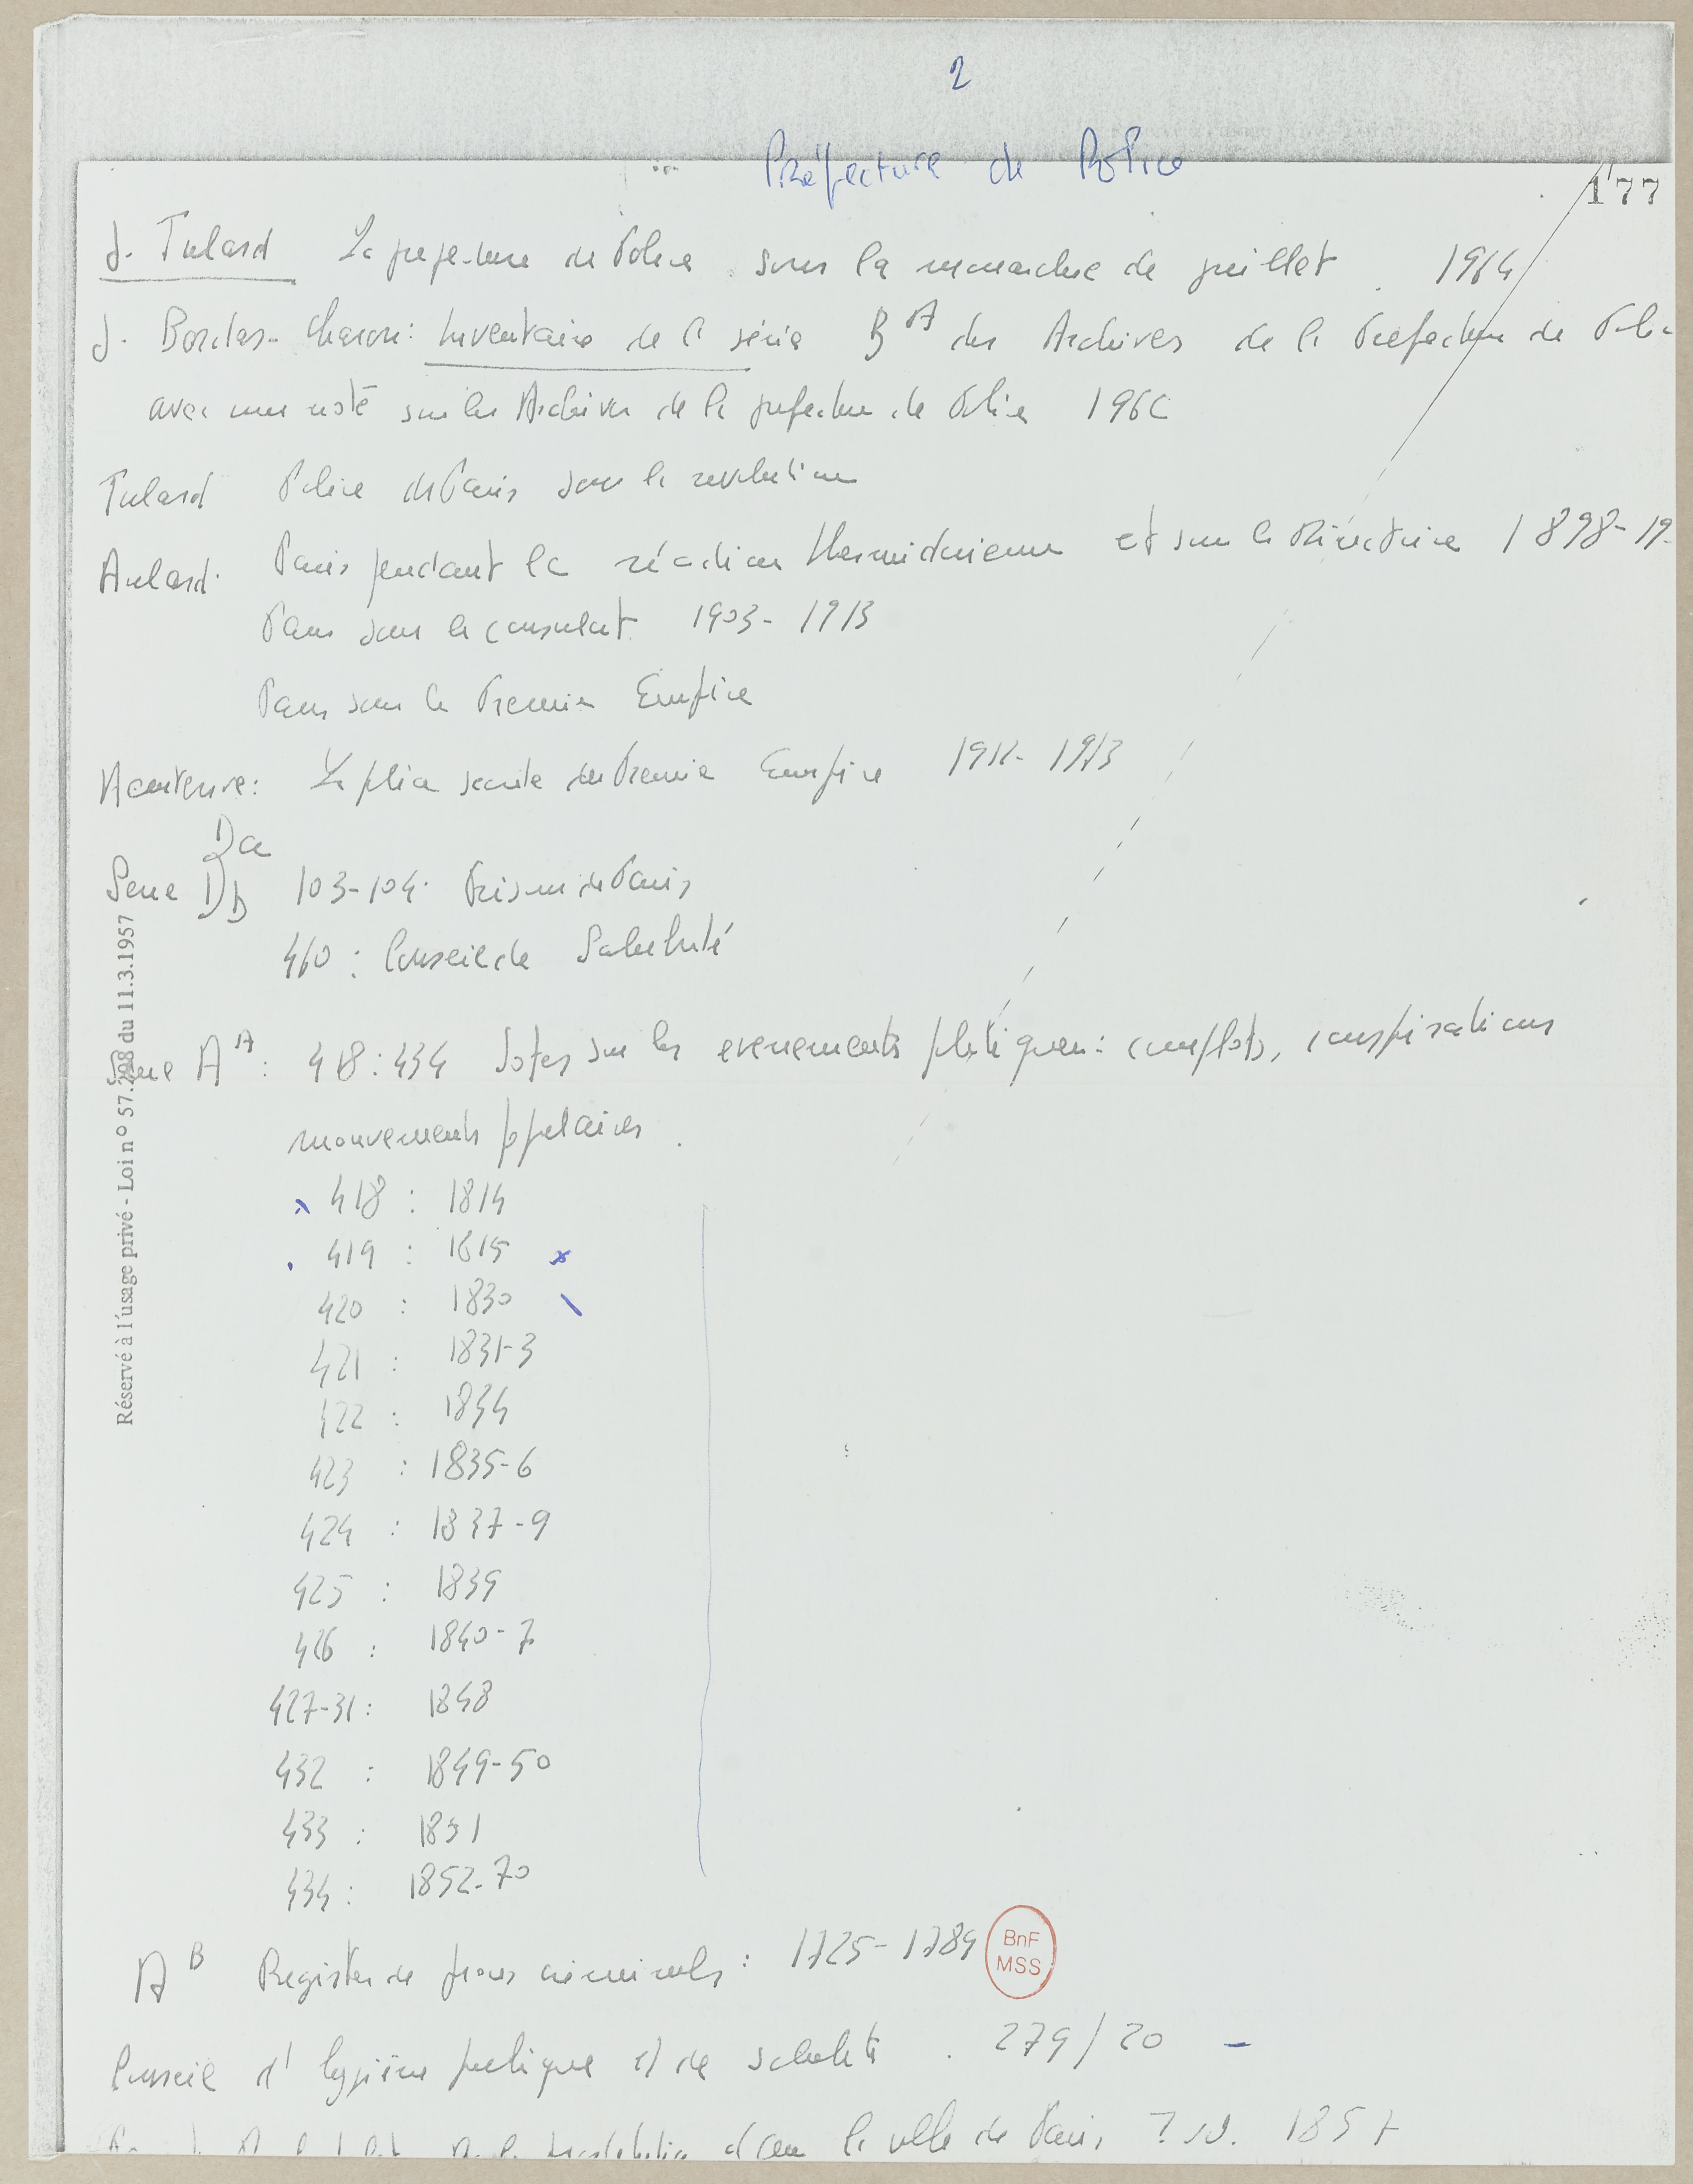 2
Préfecture de Police
177
J. Tulard La prefecture de Police sous la monarchie de juillet. 1964
J. Bordas-Charon: Inventaire de la série B A des Archives de la Prefecture de Poli-
avec une note sur les Archives de la prefecture de Police 196
Tulard Police de Paris sous la revolution
Aulard. Paris pendant la réaction thermidorienne et sous le Directoire 1898-19
Paris sous le consulat 1903-1913
Paris sous le Premier Empire
La police secrete du Premier Empire 1912-1913
Da
Serie Db 103-104. Prisons de Paris
460 : Conseil de Salubrité
Serie A A : 418:434 sur les evenements politiques: complots, conspirations
mouvements populaires.
418 : 1814
419 : 1815 x
420 : 1830
421 : 1831-3
422 : 1834
423 : 1835-6
424 : 1837-9
425 : 1839
426 : 1840-7
427-31 : 1848
432 : 1849-50
433 : 1851
434 : 1852-70
A B Registres de procès criminels : 1725-1789
BnF
MSS
Conseil d'hygiène publique et de salubrité . 279/20 -
dans la ville de Paris 185
Réservé à l'usage privé - Loi n° 57.298 du 11.3.1957